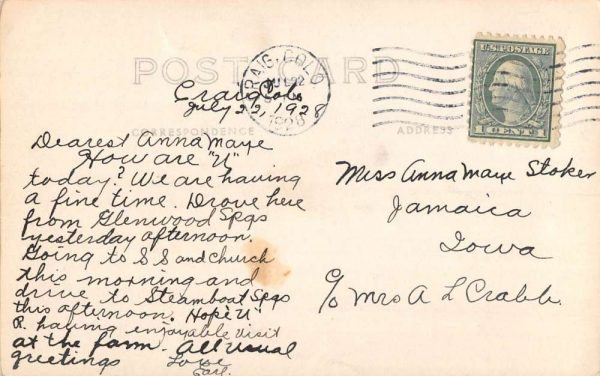 POST CARD
CRAIG, COLO.
1928
U.S. POSTAGE
1 CENT 1
Craig Colo
July 22, 1928
CORRESPONDENCE
ADDRESS
Dearest Anna Maye
How are "U"
today? We are having
a fine time. Drove here
from Glenwood Spgs
yesterday afternoon.
Going to S S and church
this morning and
drive to Steamboat Spgs
this afternoon. Hope U
R having enjoyable visit
at the farm. All usual
greetings
Love
Earl.
Miss Anna Maye Stoker
Jamaica
Iowa
c/o Mrs A L Crabb.